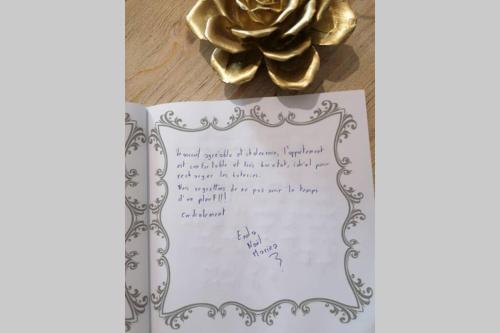 Un accueil agréable et chaleureux, l'appartement
est confortable et très bien situé, idéal pour
recharger les batteries.
Nous regrettons de ne pas avoir le temps
d'un plouf!!!
Cordialement
Enda
Noël